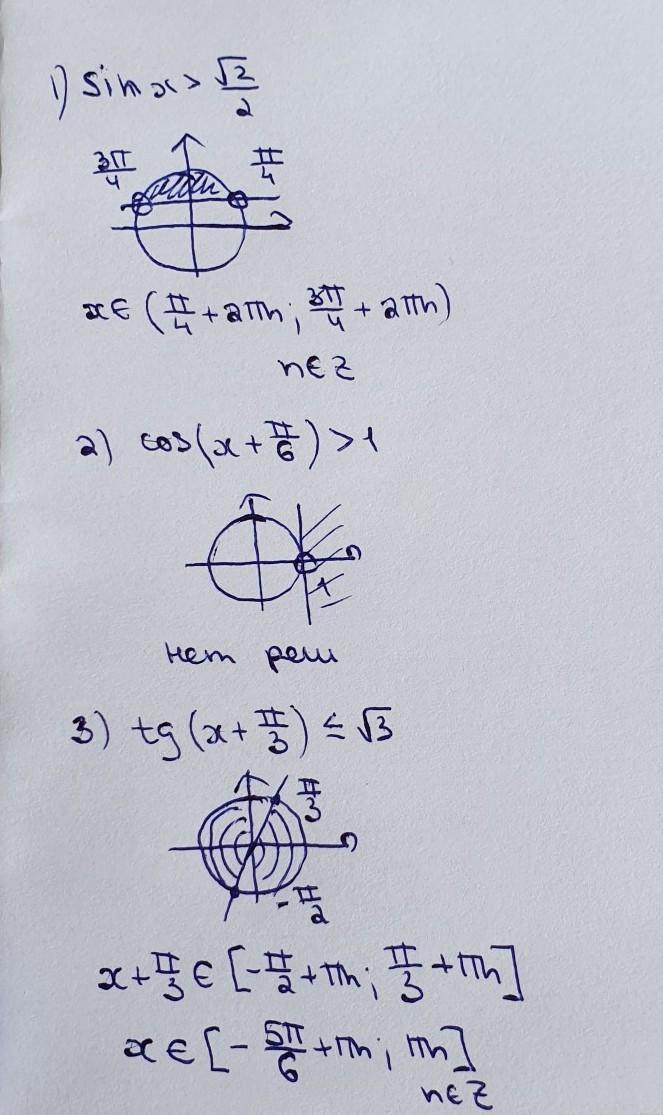 1) sin x > √2/2
3π/4 π/4
x ∈ (π/4 + 2πn; 3π/4 + 2πn)
n ∈ Z
2) cos(x + π/6) > 1
1
нет реш
3) tg(x + π/3) ≤ √3
π/3
-π/2
x + π/3 ∈ [-π/2 + πn; π/3 + πn]
x ∈ [-5π/6 + πn; πn]
n ∈ Z